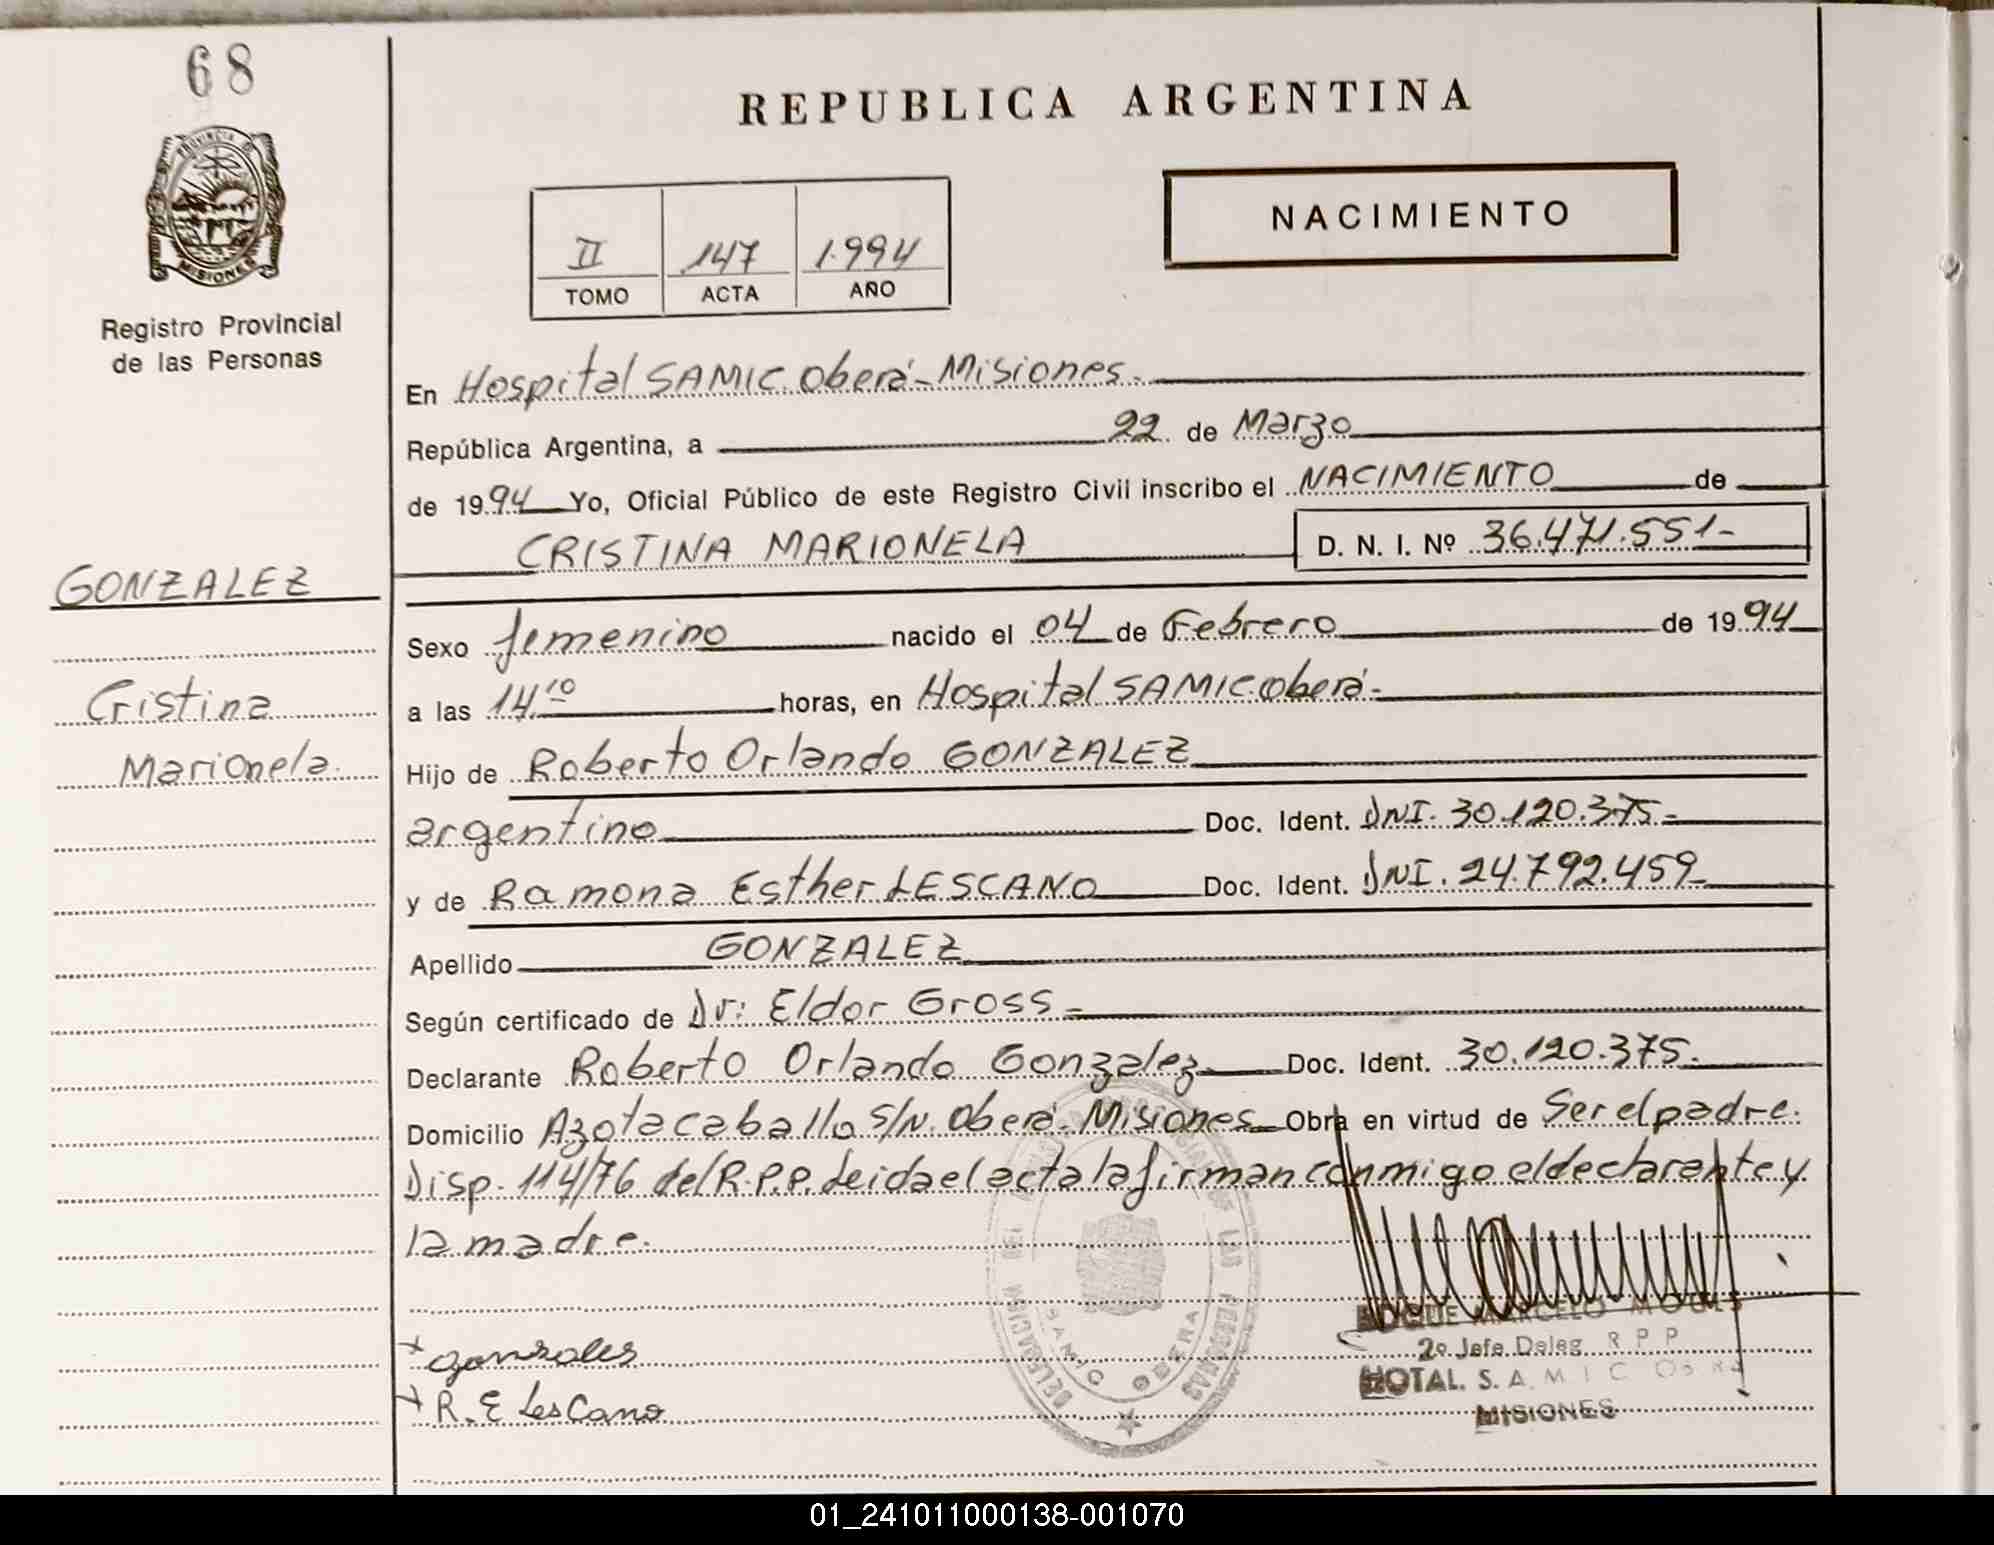 68
REPUBLICA ARGENTINA
PROVINCIA DE
MISIONES
Registro Provincial
de las Personas
NACIMIENTO
II 147 1.994
TOMO ACTA AÑO
En Hospital SAMIC. Oberá - Misiones.
República Argentina, a 22 de Marzo
de 1994 Yo, Oficial Público de este Registro Civil inscribo el NACIMIENTO de
CRISTINA MARIONELA D. N. I. Nº 36.471.551-
GONZALEZ
Cristina
Marionela.
Sexo femenino nacido el 04 de Febrero de 1994
a las 14.10 horas, en Hospital SAMIC Oberá -
Hijo de Roberto Orlando GONZALEZ
argentino Doc. Ident. DNI. 30.120.375-
y de Ramona Esther LESCANO Doc. Ident. DNI. 24.792.459
Apellido GONZALEZ
Según certificado de Dr: Eldor Gross -
Declarante Roberto Orlando Gonzalez Doc. Ident. 30.120.375.
Domicilio Azotacaballo S/N. Oberá - Misiones Obra en virtud de Ser el padre.
Disp. 114/76 del R.P.P. Leida el acta la firman conmigo el declarante y
la madre.
+ gonzales
+ R. E Lescano
DELEGACION
DE LAS PERSONAS
OBERA
ROQUE MARCELO
2º Jefe Deleg. R P P
HOTAL. S. A. M I C OBRA
MISIONES
01_241011000138-001070